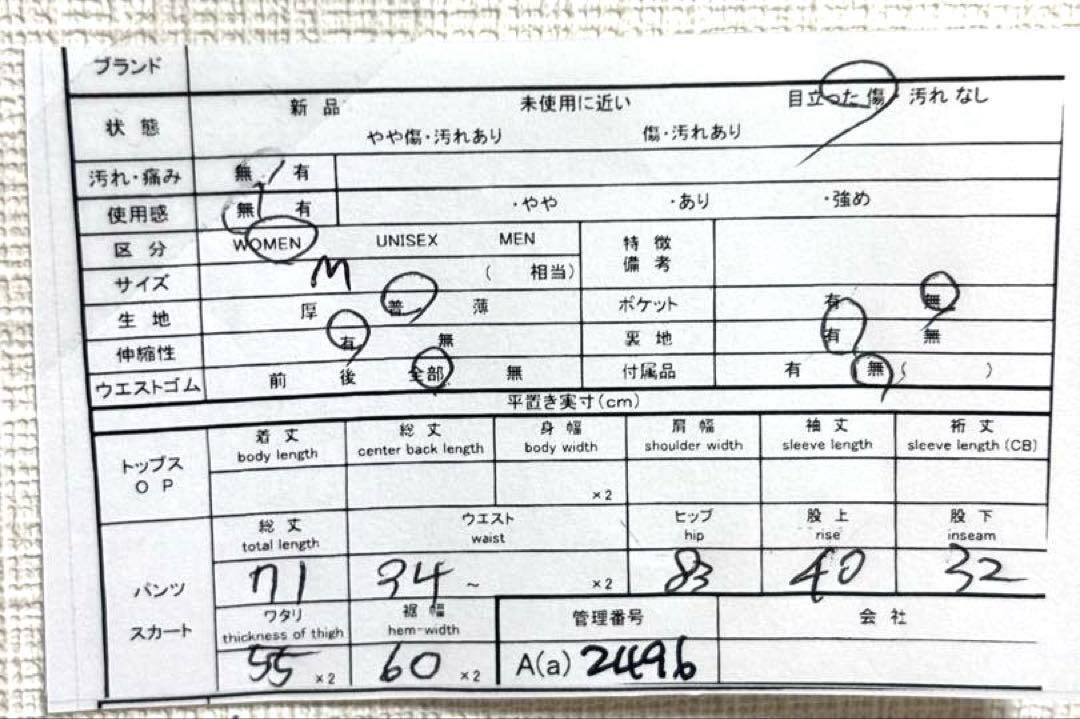 ブランド
状態 新品 未使用に近い 目立った傷/汚れなし
やや傷・汚れあり 傷・汚れあり
汚れ・痛み 無/有
使用感 無 有 ・やや ・あり ・強め
区分 WOMEN UNISEX MEN 特徴
備考
サイズ M ( 相当)
生地 厚 普 薄 ポケット 有 無
伸縮性 有 無 裏地 有 無
ウエストゴム 前 後 全部 無 付属品 有 無( )
平置き実寸(cm)
トップス
OP
着丈 総丈 身幅 肩幅 袖丈 裄丈
body length center back length body width shoulder width sleeve length sleeve length (CB)
×2
パンツ
スカート
総丈 ウエスト ヒップ 股上 股下
total length waist hip rise inseam
71 34 ~ ×2 83 40 32
ワタリ 裾幅 管理番号 会社
thickness of thigh hem-width
55 ×2 60 ×2 A(a) 2496